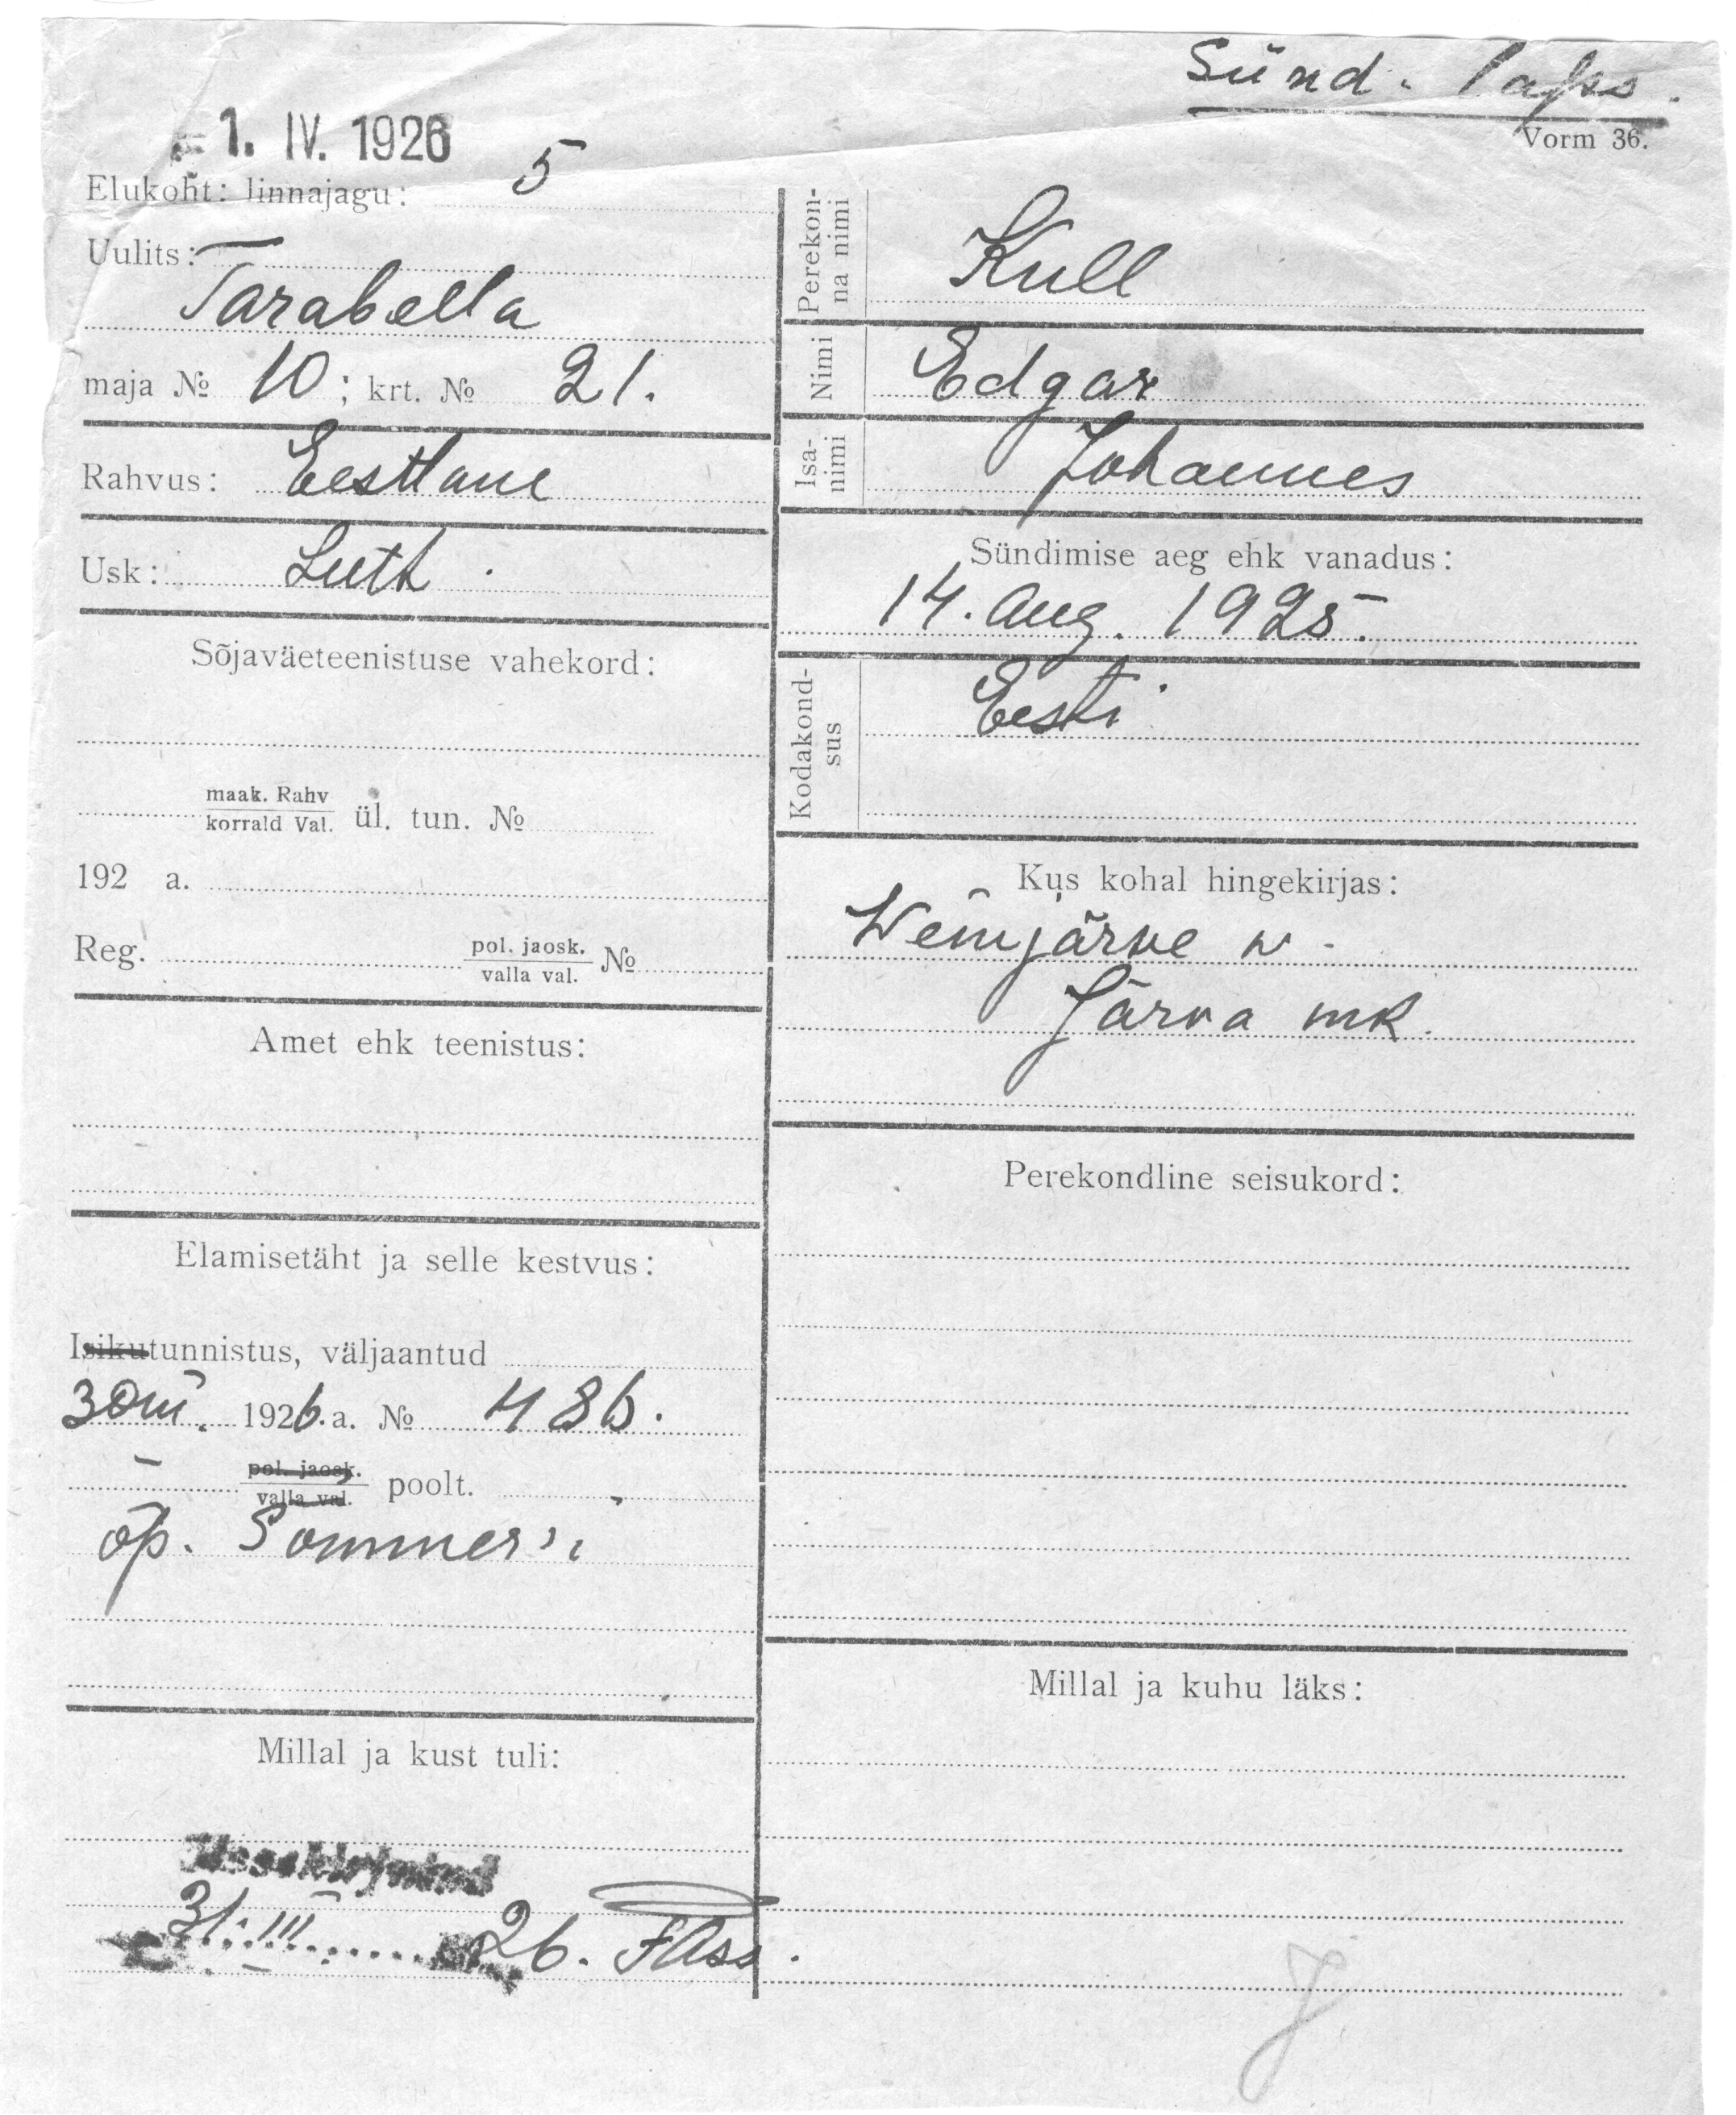 Sünd. laps.
Vorm 36.
1. IV. 1926
Elukoht: linnajagu: 5
Uulits:
Tarabella
maja № 10; krt. № 21.
Rahvus: Eestlane
Usk: Luth.
Sõjaväeteenistuse vahekord:
maak. Rahv
korrald Val. ül. tun. №
192 a.
Reg. pol. jaosk.
valla val. №
Amet ehk teenistus:
Elamisetäht ja selle kestvus:
Isikutunnistus, väljaantud
30 III. 1926. a. № 486.
pol. jaosk.
valla val. poolt.
õp. Sommer'i
Millal ja kust tuli:
Sissekirjutatud
31. III 26.
Perekon-
na nimi Kull
Nimi Edgar
Isa-
nimi Johannes
Sündimise aeg ehk vanadus:
14. Aug. 1925.
Kodakond-
sus Eesti
Kus kohal hingekirjas:
järve w.
Järva mk.
Perekondline seisukord:
Millal ja kuhu läks: